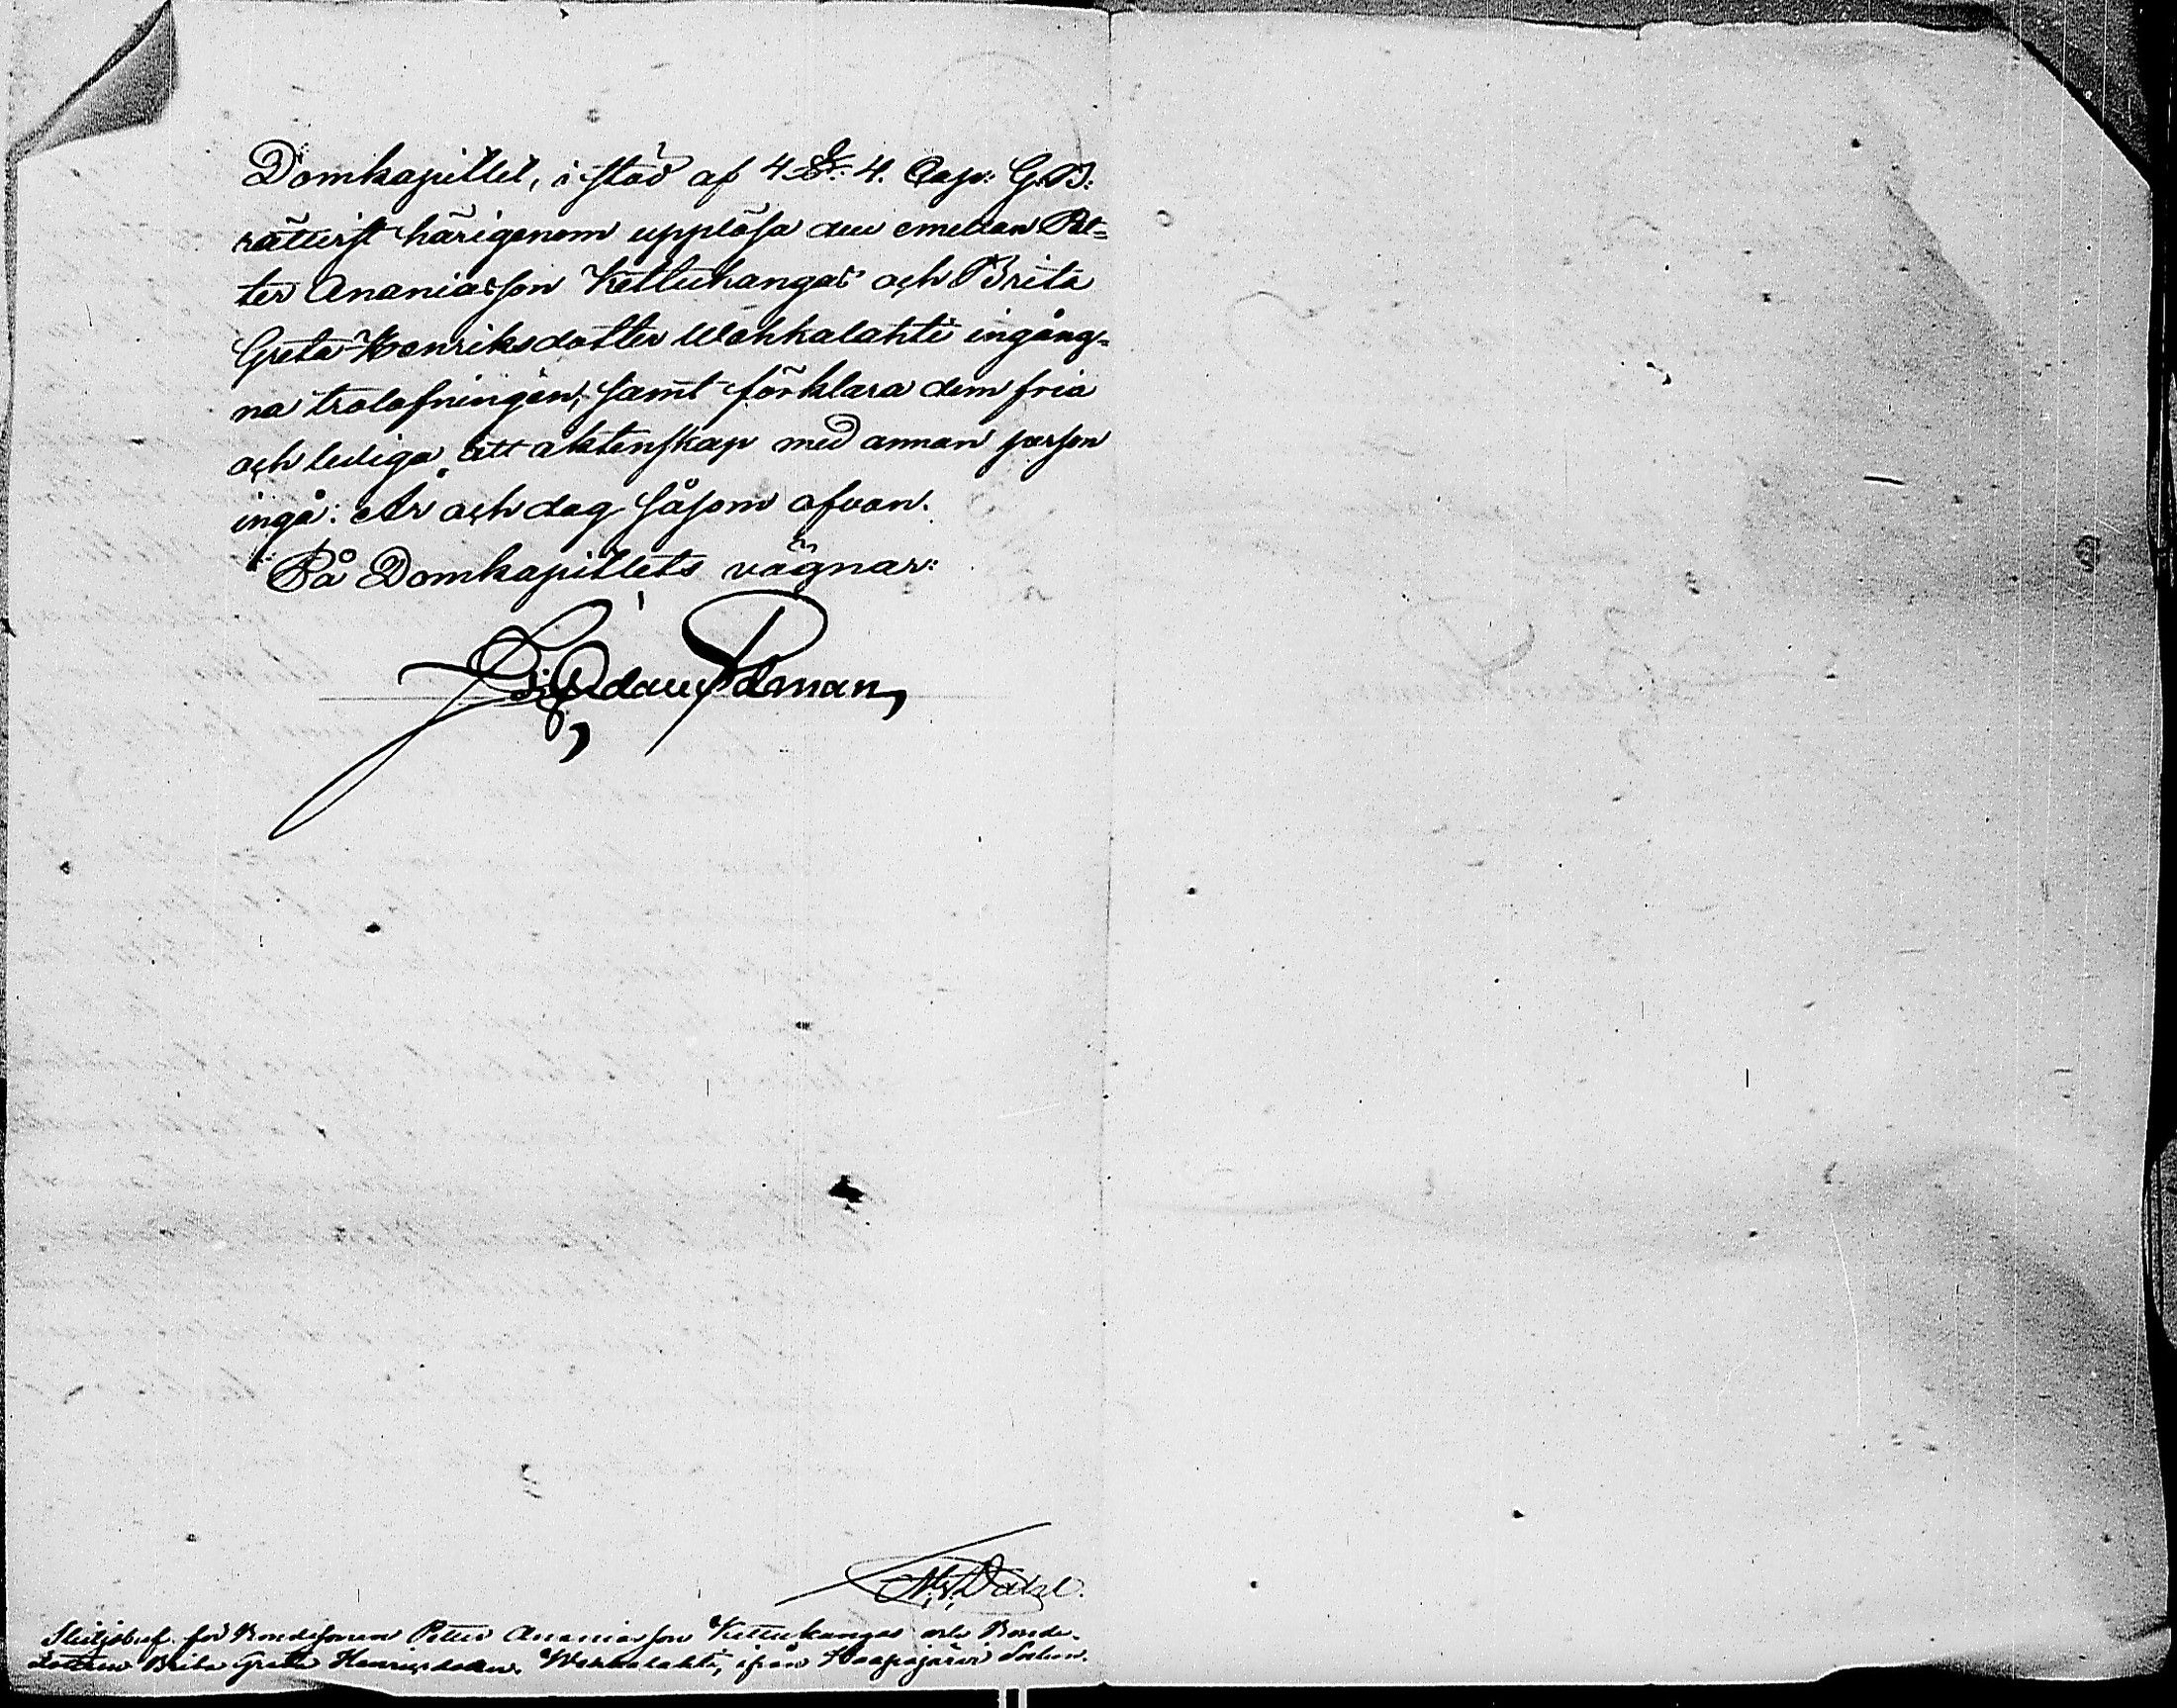 Domkapitlet, i stöd af 4 §. 4. Cap: G. B.
rättvist härigenom upplösa den emellan Pet=
ter Ananiasson Kettukangas och Brita
Greta Henriksdotter Wehkalahti ingång=
na trolofningen, samt förklara dem fria
och lediga att äktenskap med annan person
ingå. År och dag såsom ofvan.
På Domkapitlets vägnar:
Skiljobref för Bondesonen Petter Ananiasson Kettukangas och Bonde-
dottren Brita Greta Henricsdotter Wehkalahti, ifrån Haapajärvi Socken.